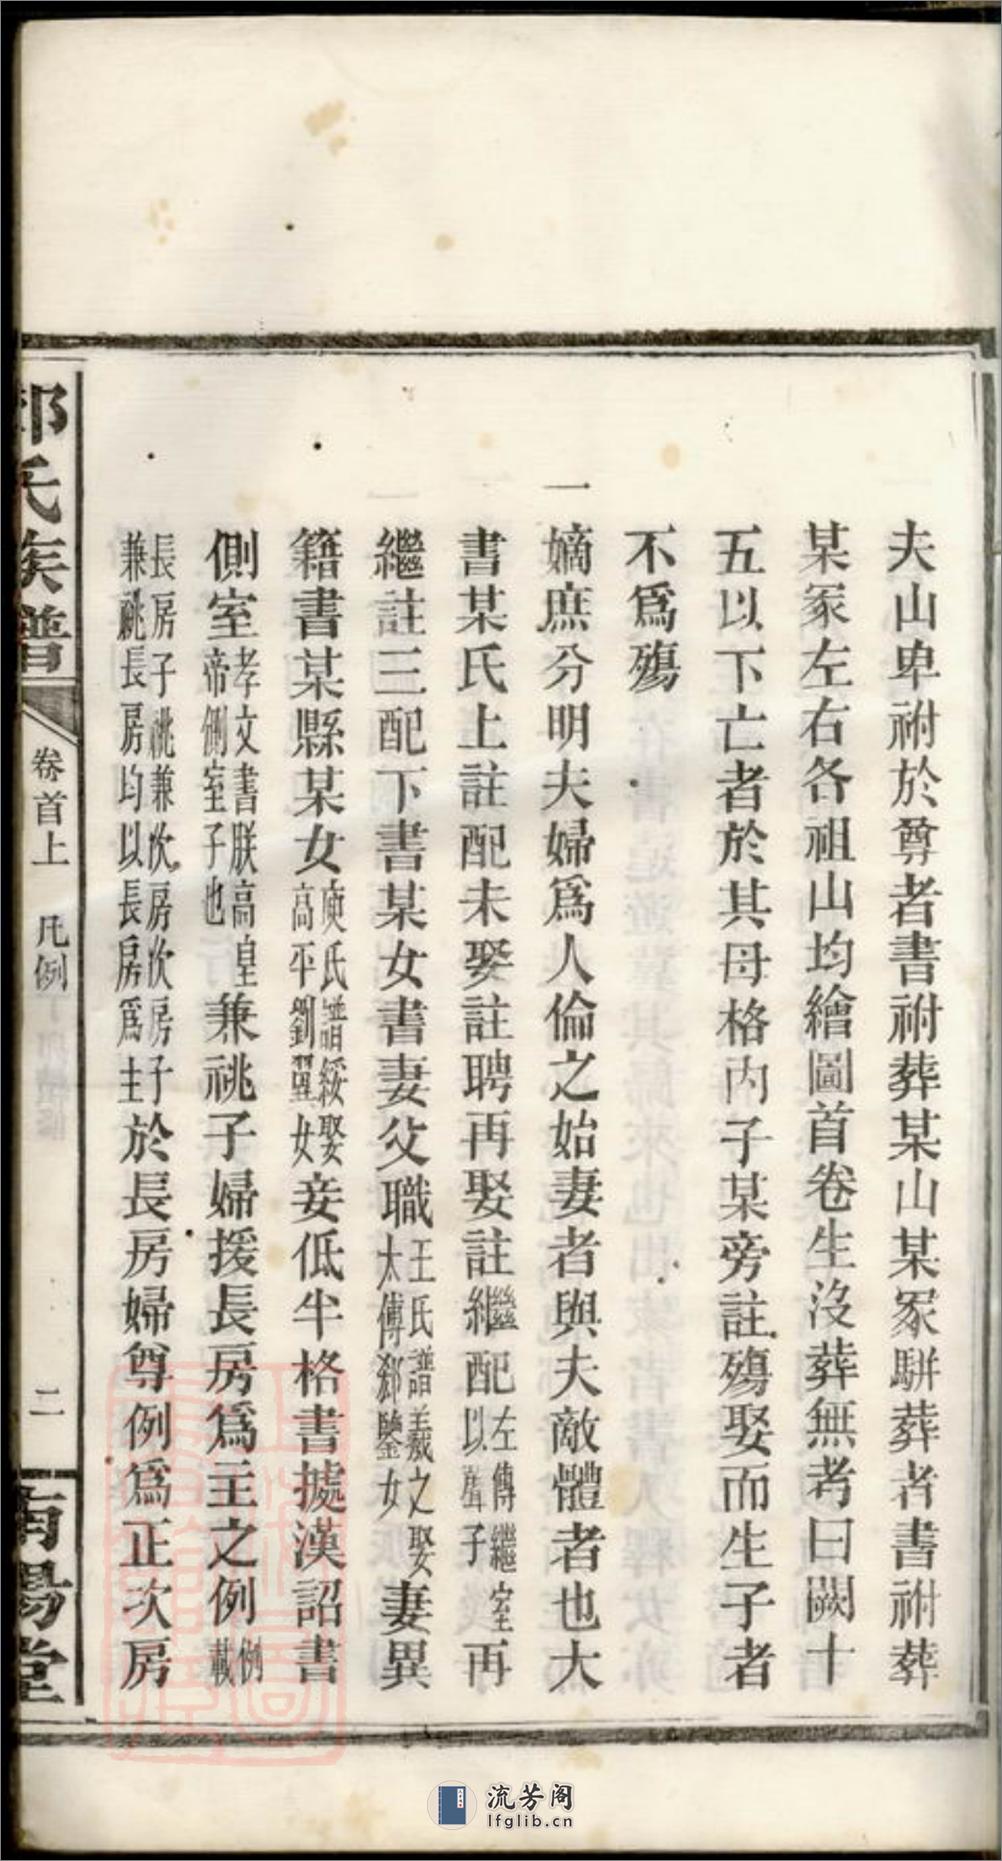 夫山卑祔於尊者書祔葬某山某冢騈葬者書祔葬
某冢左右各祖山均繪圖首卷生沒葬無考曰闕十
五以下亡者於其母格內子某旁註殤娶而生子者
不爲殤
一嫡庶分明夫婦爲人倫之始妻者與夫敵體者也大
書某氏上註配未娶註聘再娶註繼配左傳繼室以聲子再
繼註三配下書某女書妻父職王氏譜羲之娶太傅郗鑒女妻異
籍書某縣某女庾氏譜綏娶高平劉翼女妾低半格書據漢詔書
側室孝文書朕高皇帝側室子也兼祧子婦援長房爲主之例例載
長房子祧兼次房次房子兼祧長房均以長房爲主於長房婦尊例爲正次房
氏族譜
卷首上
凡例
二
南陽堂
流芳阁
lfglib.cn